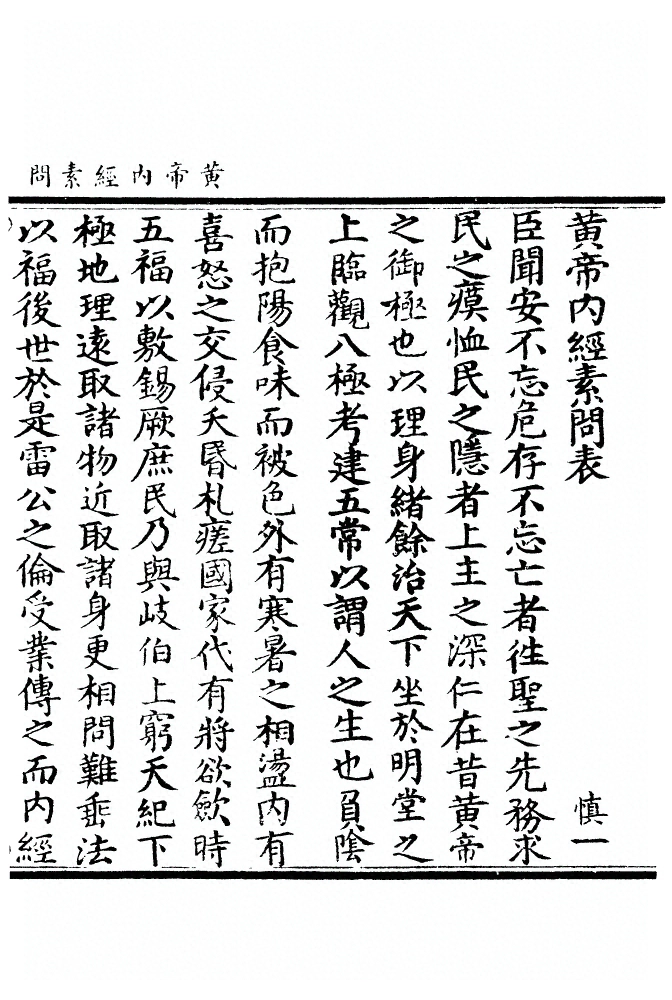 黄帝内經素問
黄帝内經素問表
慎一
臣聞安不忘危存不忘亡者徃聖之先務求
民之瘼恤民之隱者上主之深仁在昔黄帝
之御極也以理身緒餘治天下坐於明堂之
上臨觀八極考建五常以謂人之生也負陰
而抱陽食味而被色外有寒暑之相盪内有
喜怒之交侵夭昬札瘥國家代有將欲歛時
五福以敷錫厥庶民乃與岐伯上窮天紀下
極地理遠取諸物近取諸身更相問難垂法
以福後世於是雷公之倫受業傳之而内經